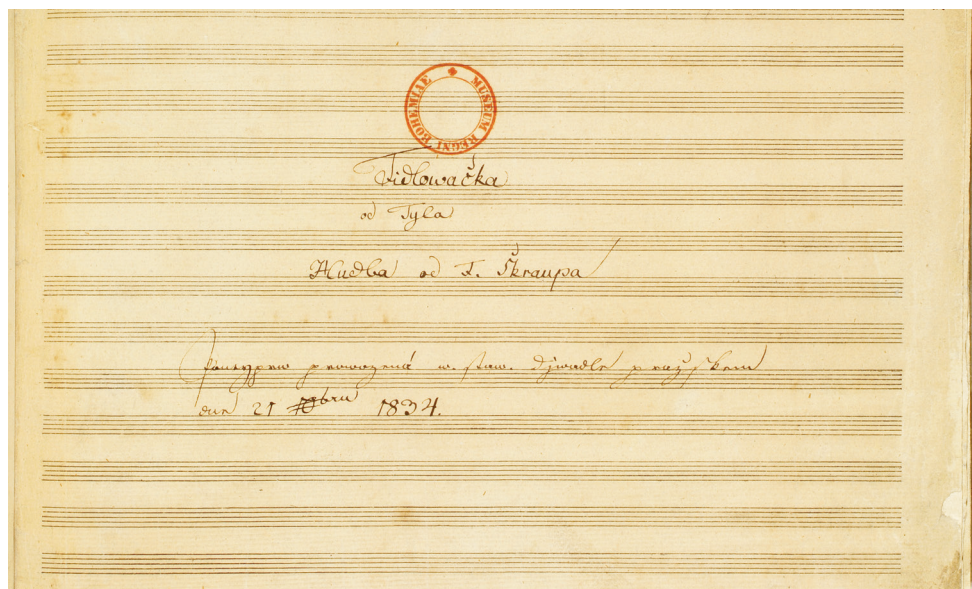 MUSEUM REGNI BOHEMIAE
Fidlowačka
od Tyla
Hudba od F. Škraupa
ponejprw prowozená w. staw. djwadle pražském
dne 21 10bru 1834.